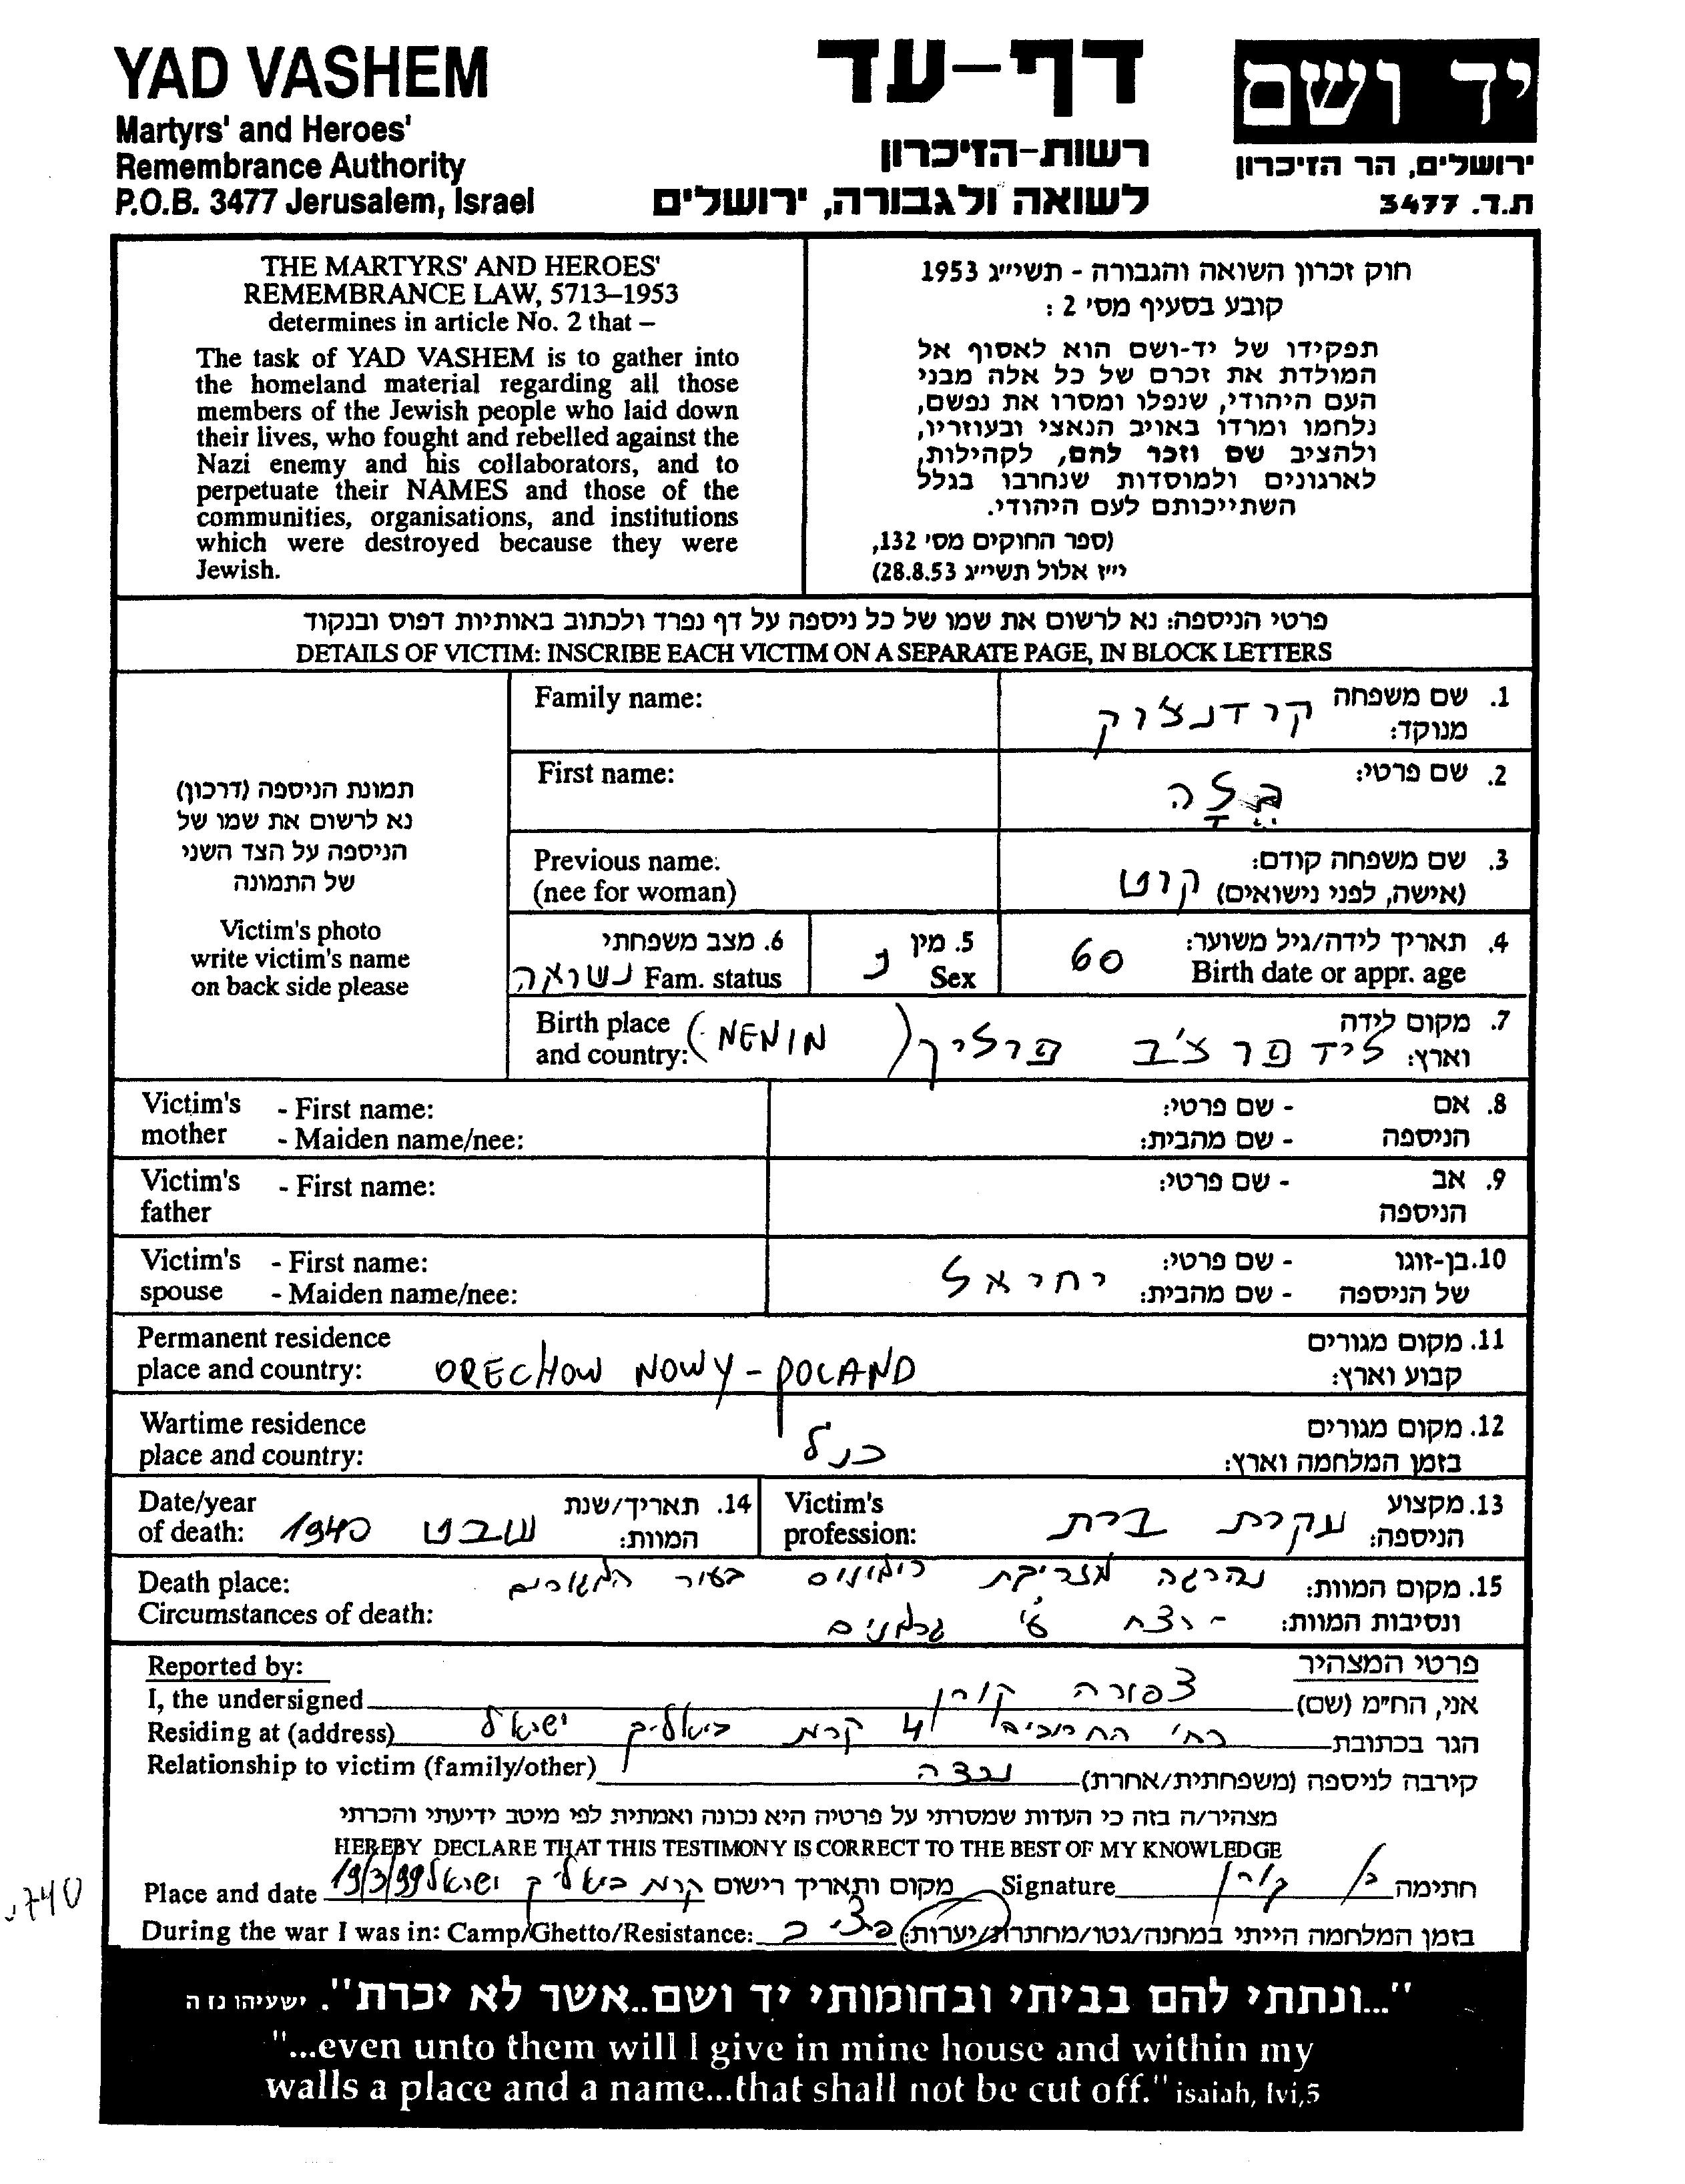 YAD VASHEM
Martyrs' and Heroes'
Remembrance Authority
P.O.B. 3477 Jerusalem, Israel
דף-עד
רשות-הזיכרון
לשואה ולגבורה, ירושלים
יד ושם
ירושלים, הר הזיכרון
ת.ד. 3477
THE MARTYRS' AND HEROES'
REMEMBRANCE LAW, 5713–1953
determines in article No. 2 that –
The task of YAD VASHEM is to gather into
the homeland material regarding all those
members of the Jewish people who laid down
their lives, who fought and rebelled against the
Nazi enemy and his collaborators, and to
perpetuate their NAMES and those of the
communities, organisations, and institutions
which were destroyed because they were
Jewish.
חוק זכרון השואה והגבורה - תשי״ג 1953
קובע בסעיף מס׳ 2 :
תפקידו של יד-ושם הוא לאסוף אל
המולדת את זכרם של כל אלה מבני
העם היהודי, שנפלו ומסרו את נפשם,
נלחמו ומרדו באויב הנאצי ובעוזריו,
ולהציב שם וזכר להם, לקהילות,
לארגונים ולמוסדות שנחרבו בגלל
השתייכותם לעם היהודי.
(ספר החוקים מס׳ 132,
י״ז אלול תשי״ג 28.8.53)
פרטי הניספה: נא לרשום את שמו של כל ניספה על דף נפרד ולכתוב באותיות דפוס ובנקוד
DETAILS OF VICTIM: INSCRIBE EACH VICTIM ON A SEPARATE PAGE, IN BLOCK LETTERS
תמונת הניספה (דרכון)
נא לרשום את שמו של
הניספה על הצד השני
של התמונה
Victim's photo
write victim's name
on back side please
Family name:
1. שם משפחה קרדנצוק
מנוקד:
First name:
2. שם פרטי: בלה
Previous name:
(nee for woman)
3. שם משפחה קודם:
(אישה, לפני נישואים) קוט
4. תאריך לידה/גיל משוער: 60
Birth date or appr. age
5. מין נ
Sex
6. מצב משפחתי
Fam. status נשואה
Birth place
and country:
7. מקום לידה
וארץ: פולין (NENIN)
Victim's - First name:
mother - Maiden name/nee:
8. אם - שם פרטי:
הניספה - שם מהבית:
Victim's - First name:
father
9. אב - שם פרטי:
הניספה
Victim's - First name:
spouse - Maiden name/nee:
10. בן-זוגו - שם פרטי: יחיאל
של הניספה - שם מהבית:
Permanent residence
place and country: ORECHOW NOWY - POLAND
11. מקום מגורים
קבוע וארץ:
Wartime residence
place and country:
12. מקום מגורים
בזמן המלחמה וארץ: כנ״ל
Date/year
of death:
14. תאריך/שנת
המוות: שבט 1940
Victim's
profession:
13. מקצוע
הניספה: עקרת בית
Death place:
Circumstances of death:
15. מקום המוות: נהרגה מזריקת רימונים המגורים
ונסיבות המוות: - רצח ע״י גרמנים
Reported by:
פרטי המצהיר
I, the undersigned
אני, הח״מ (שם) צפורה קורן
Residing at (address)
הגר בכתובת רח׳ 4 קרית ביאליק ישראל
Relationship to victim (family/other)
קירבה לניספה (משפחתית/אחרת) נכדה
מצהיר/ה בזה כי העדות שמסרתי על פרטיה היא נכונה ואמתית לפי מיטב ידיעתי והכרתי
HEREBY DECLARE THAT THIS TESTIMONY IS CORRECT TO THE BEST OF MY KNOWLEDGE
Place and date 19/3/99 קרית ביאליק ישראל מקום ותאריך רישום
Signature חתימה צ. קורן
During the war I was in: Camp/Ghetto/Resistance:
בזמן המלחמה הייתי במחנה/גטו/מחתרת/יערות:
"...ונתתי להם בביתי ובחומותי יד ושם..אשר לא יכרת". ישעיהו נו ה
"...even unto them will I give in mine house and within my
walls a place and a name...that shall not be cut off." isaiah, lvi,5